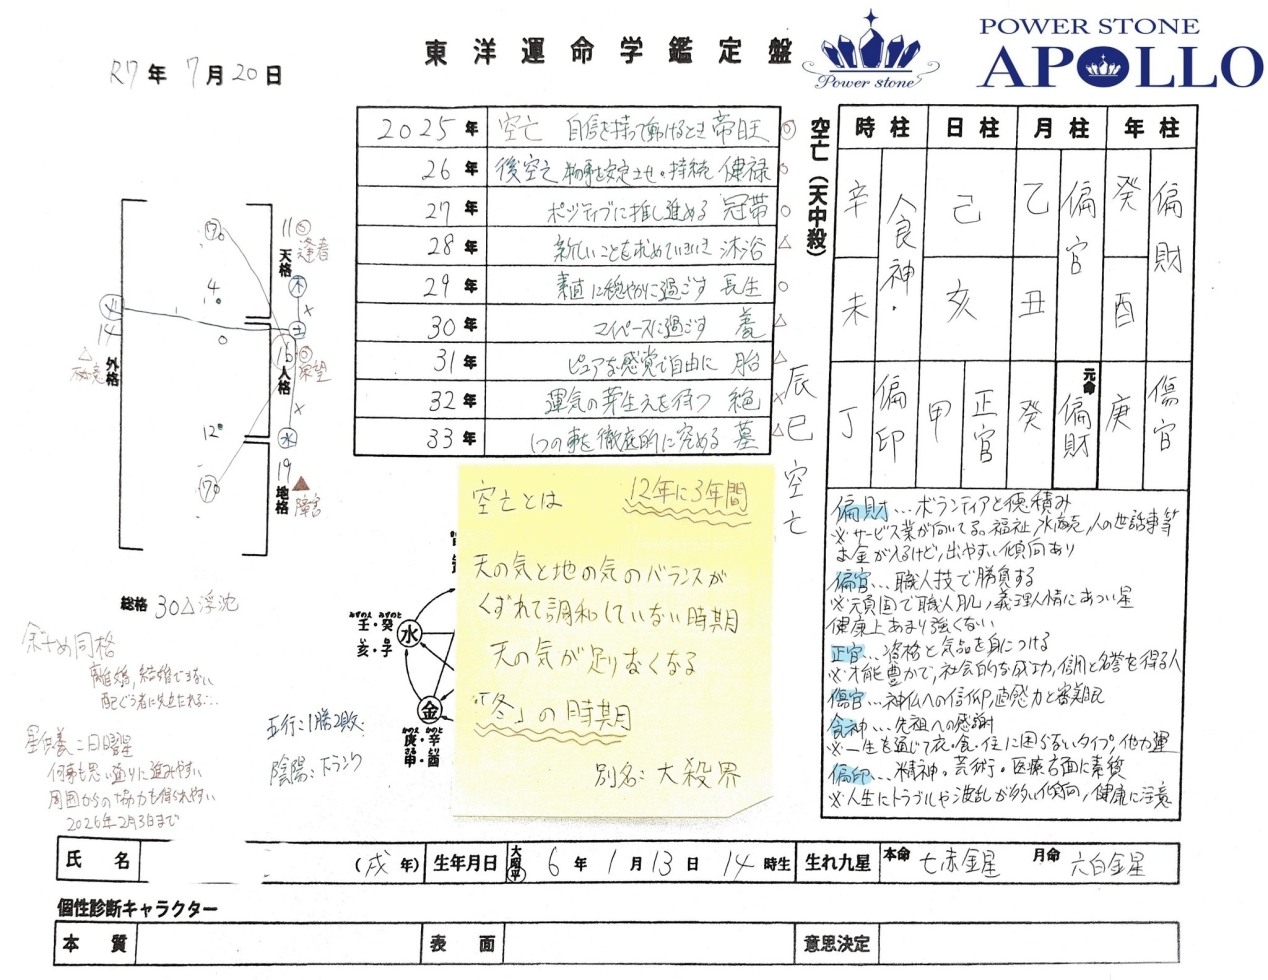 東洋運命学鑑定盤
Power stone
POWER STONE
APOLLO
R7年 7月20日
2025年 空亡 自信を持って動けるとき 帝旺 ◎
26年 後空亡 物事を安定させ。持続 健禄 ○
27年 ポジティブに推し進める 冠帯 ○
28年 新しいことを求めていきいき 沐浴 △
29年 素直に穏やかに過ごす 長生 ○
30年 マイペースに過ごす 養 △
31年 ピュアな感覚で自由に 胎 △
32年 運気の芽生えを待つ 絶 ×
33年 1つの事を徹底的に究める 墓 △
空亡(天中殺)
辰巳空亡
時柱 日柱 月柱 年柱
辛 食神 己 乙 偏官 癸 偏財
未 亥 丑 酉
丁 偏印 甲 正官 癸 元命 偏財 庚 傷官
偏財…ボランティアと徳積み
※サービス業が向いてる。福祉,水商売,人の世話事等
お金が入るけど,出やすい傾向あり
偏官…職人技で勝負する
※元頑固で職人肌,義理人情にあつい星
健康上あまり強くない
正官…資格と気品を身につける
※才能豊かで,社会的な成功,信用と名誉を得る人
傷官…神仏への信仰,直感力と審美眼
食神…先祖への感謝
※一生を通じて衣・食・住に困らないタイプ,他力運
偏印…精神。芸術・医療方面に素質
※人生にトラブルや波乱が多い傾向,健康に注意
11 ◎
天格
木
×
土
16 ◎
人格
×
水
19
地格 障害
14
外格
4
0
12
総格 30△浮沈
同格
離婚,結婚できない
配ぐう者に先立たれる…
二日曜星
何事も思い通りに進みやすい
周囲からの協力も得られやすい
2026年2月3日まで
五行:1勝2敗
陰陽:
みずのえ みずのと
壬・癸
亥・子
水
金
かのえ かのと
庚・辛
さる とり
申・酉
空亡とは 12年に3年間
天の気と地の気のバランスが
くずれて調和していない時期
天の気が足りなくなる
「冬」の時期
別名:大殺界
氏名 (戌年) 生年月日 大昭平 6年 1月13日 14時生 生れ九星 本命 七赤金星 月命 六白金星
個性診断キャラクター
本質 表面 意思決定